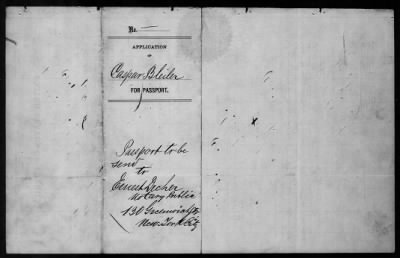 No. —
APPLICATION
OF
Caspar Bleiler
FOR PASSPORT.
Passport to be
send
to
Ernest
Notary Public
130 Greenwich St
New-York City